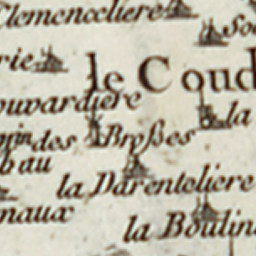 Clemenceliere
rie
le Coud
ouvardiere
la
des Broßes
bau
la Darenteliere
naux
la Boulin